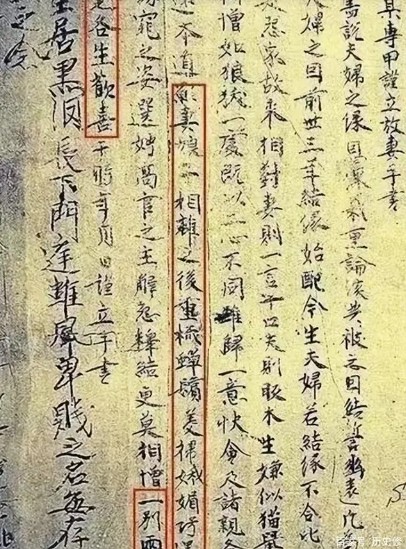 某專甲謹立放妻手書
盖說夫婦之緣恩深義重論談共被之因結誓幽遠凡
夫婦之因前世三年結緣始配今生夫婦若結緣不合比
怨家故來相對妻則一言十口夫則眅木生嫌似猫鼠
相憎如狼犺一處既以二心不同難歸一意快會及諸親各
還本道願妻娘子相離之後重梳蟬鬢美掃娥媚巧逞
窕之姿選娉高官之主解怨釋結更莫相憎一別兩
各生歡喜于時年月日謹立手書
生居黑長下門庭雖屬卑賤之名每存